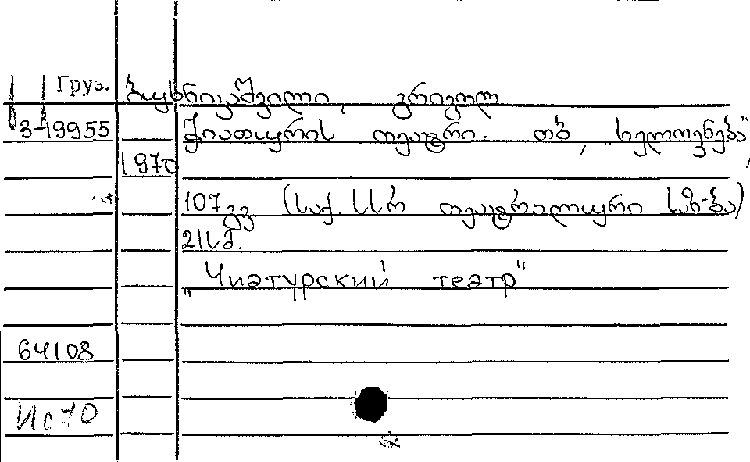 Груз. ბუხნიკაშვილი, გრიგოლ
3-19955 ჭიათურის თეატრი. თბ., ხელოვნება",
1970
107 გვ. (საქ. სსრ თეატრალური საზ-ბა)
21 სმ.
"Чиатурский театр"
64108
Ис70